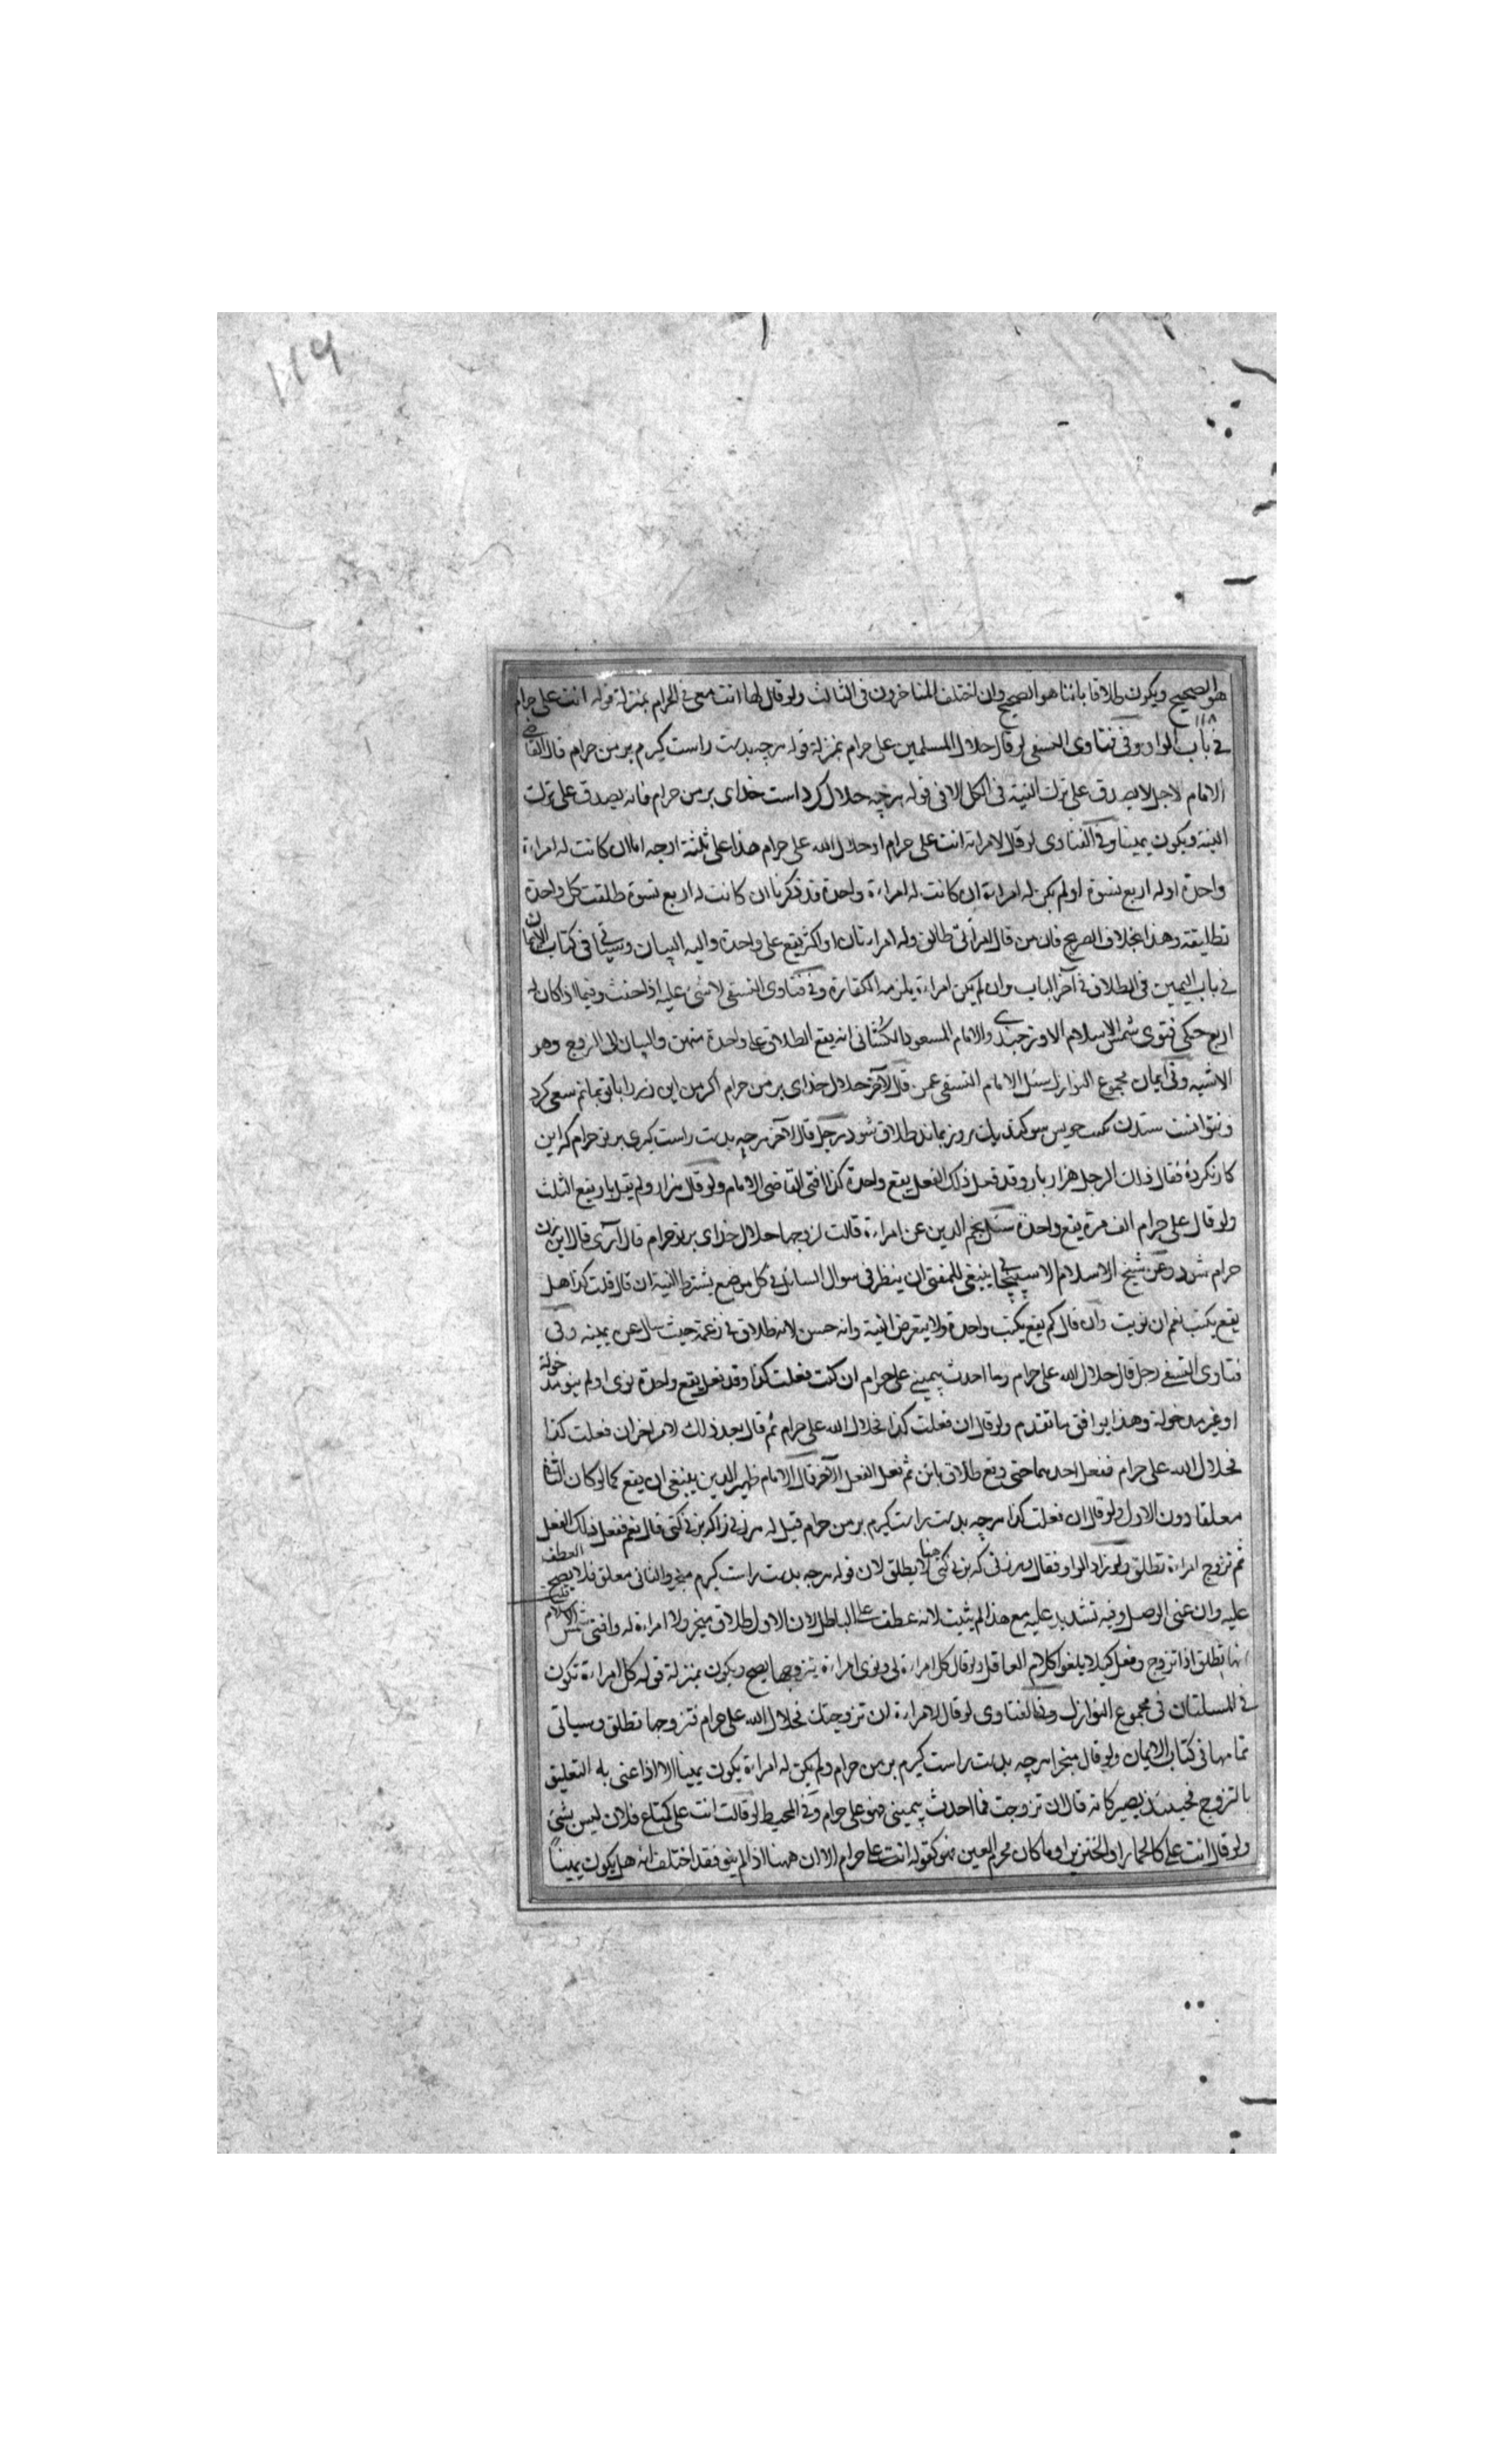 ١١٩
هو الصحيح ويكون طلاقا بائنا هو الصحيح وان اختلف المتاخرون فى الثالث ولو قال لها انت معى فى الحرام بمنزلة قوله انت على حرام
١١٨
فى باب الواو وفى فتاوى النسفى لو قال حلال المسلمين على حرام بمنزلة قوله هرچه بدست راست كيرم بر من حرام قال القاضى
الامام لاجل لا يصدق على ترك النية فى الكل الا فى قوله هرچه حلال كرد است خداى بر من حرام فانه يصدق على ترك
النية ويكون يمينا وفى الفتاوى لو قال لامراته انت على حرام او حلال الله على حرام هذا على ثلثة اوجه اما ان كانت له امراءة
واحدة او له اربع نسوة او لم يكن له امراءة ان كانت له امراءة واحدة قد ذكرنا ان كانت له اربع نسوة طلقت كل واحدة
تطليقة وهذا بخلاف الصريح فان من قال امراتى طالق وله امراءتان او اكثر يقع على واحدة واليه البيان وسياتى فى كتاب الايمان
فى باب اليمين فى الطلاق فى آخر الباب وان لم يكن امراءة يلزمه الكفارة وفى فتاوى النسفى لا شئ عليه اذا حنث وفيما اذا كان له
اربع حكى فتوى شمس الاسلام الاوزجندى والامام المسعود الكشانى انه يقع الطلاق على واحدة منهن والبيان الى الزوج وهو
الاشبه وفى ايمان مجموع النوازل سئل الامام النسفى عمن قال لآخر حلال خداى بر من حرام اكر من اين زن را باتو بمانم سعى كرد
ونتوانست ستدن سوكند يك روز بماند طلاق شود رجل قال لآخر هرچه بدست راست كيرى بر تو حرام كه اين
كار نكردهٔ فقال ذلك الرجل هزار بار وقد فعل ذلك الفعل يقع واحدة كذا افتى القاضى الامام ولو قال هزار ولم يقل بار يقع الثلث
ولو قال على حرام الف مرة يقع واحدة سئل نجم الدين عن امراءة قالت لزوجها حلال خداى بر تو حرام قال آرى قال اين زن
حرام شود وعن شيخ الاسلام الاسبيجابى ينبغى للمفتى ان ينظر فى سوال السائل فى كل موضع يشترط النية ان قال قلت كذا هل
يقع يكتب نعم ان نويت وان قال كم يقع يكتب واحدة ولا يتعرض النية وانه حسن لانه طلاق فى زعمه حيث سال عن يمينه وفى
فتاوى النسفى رجل قال حلال الله على حرام وما احدث بيمينى على حرام ان كنت فعلت كذا وقد فعل يقع واحدة نوى او لم ينو مدخولة
او غير مدخولة وهذا يوافق ما تقدم ولو قال ان فعلت كذا فحلال الله على حرام ثم قال بعد ذلك لامر اخر ان فعلت كذا
فحلال الله على حرام ففعل احدهما حتى وقع طلاق بائن ثم فعل الفعل الآخر قال الامام ظهير الدين ينبغى ان يقع كما لو كان الثانى
معلقا دون الاول ولو قال ان فعلت كذا هرچه بدست راست كيرم بر من حرام قيل له هر زنى را كه بزنى كنى قال نعم ففعل ذلك الفعل
ثم تزوج امراءة تطلق ولو زاد الواو فقال وهر زنى كه بزنى كنى لا يطلق لان قوله هرچه بدست راست كيرم منجز والثانى معلق فلا يصح العطف
عليه وان عنى الوصل وفيه تشديد عليه مع هذا لم يثبت لانه عطف على الباطل لان الاول طلاق منجز ولا امراءة له وافتى شمس الاسلام
انها تطلق اذا تزوج وفعل كيلا يلغو كلام العاقل ولو قال كل امراءة لى ونوى امراءة يتزوجها يصح ويكون بمنزلة قوله كل امراءة تكون
لى المسئلتان فى مجموع النوازل وفى الفتاوى لو قال لامراءة ان تزوجتك فحلال الله على حرام فتزوجها تطلق وسياتى
تمامها فى كتاب الايمان ولو قال منجزا هرچه بدست راست كيرم بر من حرام ولم يكن له امراءة يكون يمينا الا اذا عنى به التعليق
بالتزوج فحينئذ يصير كانه قال ان تزوجت فما احدث بيمينى فهو على حرام وفى المحيط لو قالت انت على كمتاع فلان ليس بشئ
ولو قال انت على كالحمار او الخنزير او ما كان محرم العين فهو كقوله انت على حرام الا ان ههنا اذا لم ينو فقد اختلف انه هل يكون يمينا